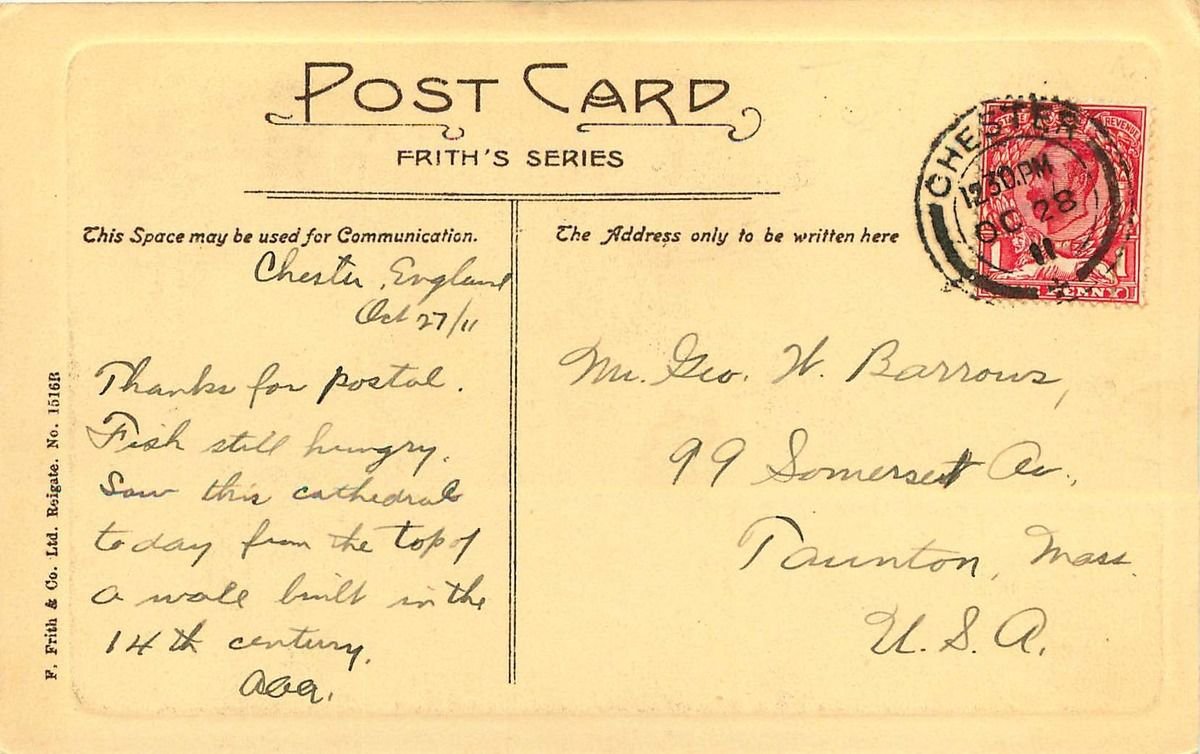 POST CARD
FRITH'S SERIES
This Space may be used for Communication.
The Address only to be written here
CHESTER
12.30.PM
OC 28
11
REVENUE
1 1
PENNY
Chester, England
Oct 27/11
Thanks for postal.
Fish still hungry.
Saw this cathedral
today from the top of
a wall built in the
14th century.
Mr. Geo. W. Barrows,
99 Somerset Av.,
Taunton, Mass.
U.S.A.
F. Frith & Co. Ltd. Reigate. No. 1516B